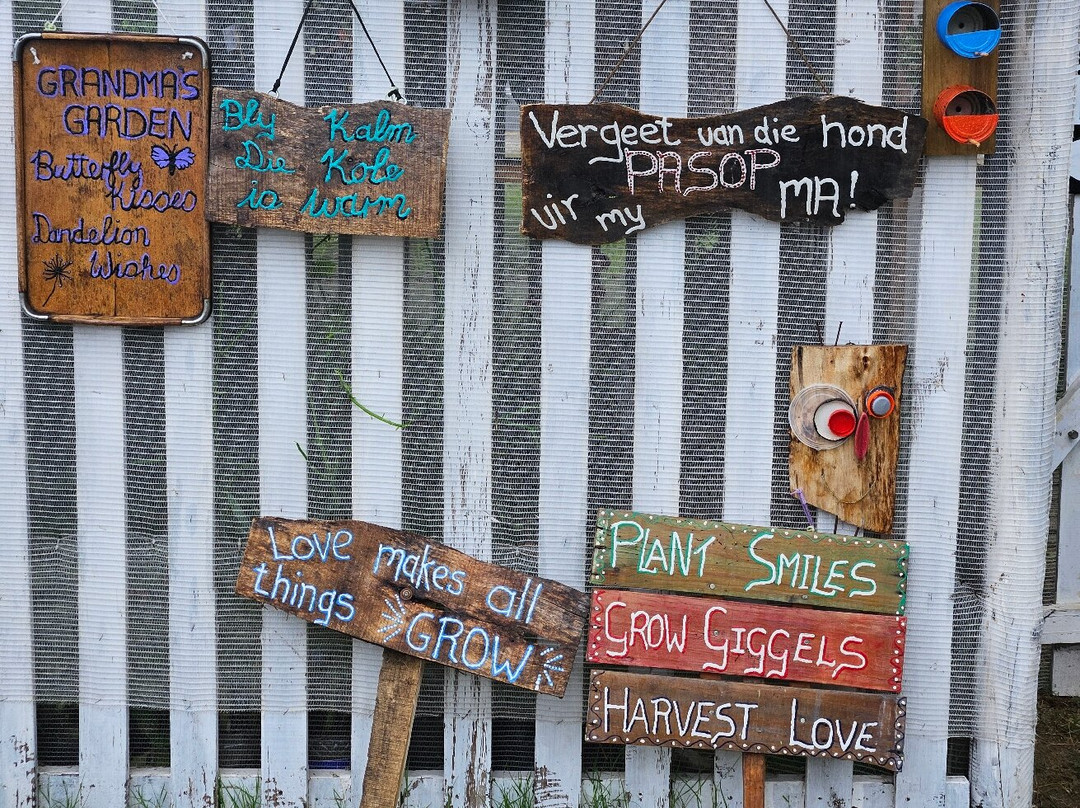 GRANDMA'S
GARDEN
Butterfly
Kisses
Dandelion
Wishes
Bly Kalm
Die Kole
is warm
Vergeet van die hond
PASOP
vir my MA!
Love makes all
things GROW
PLANT SMILES
GROW GIGGELS
HARVEST LOVE